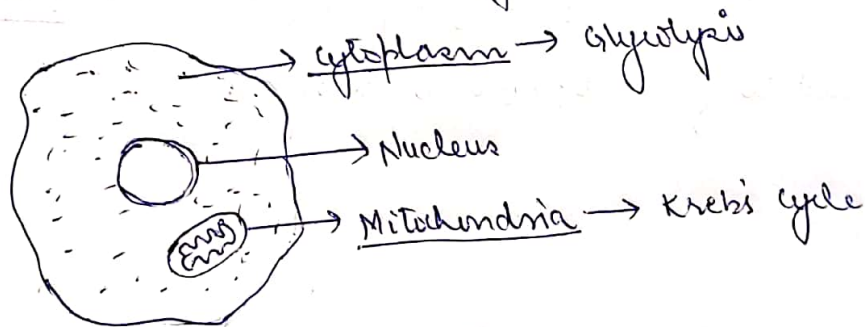 Cytoplasm → Glycolysis
Nucleus
Mitochondria → Kreb's cycle